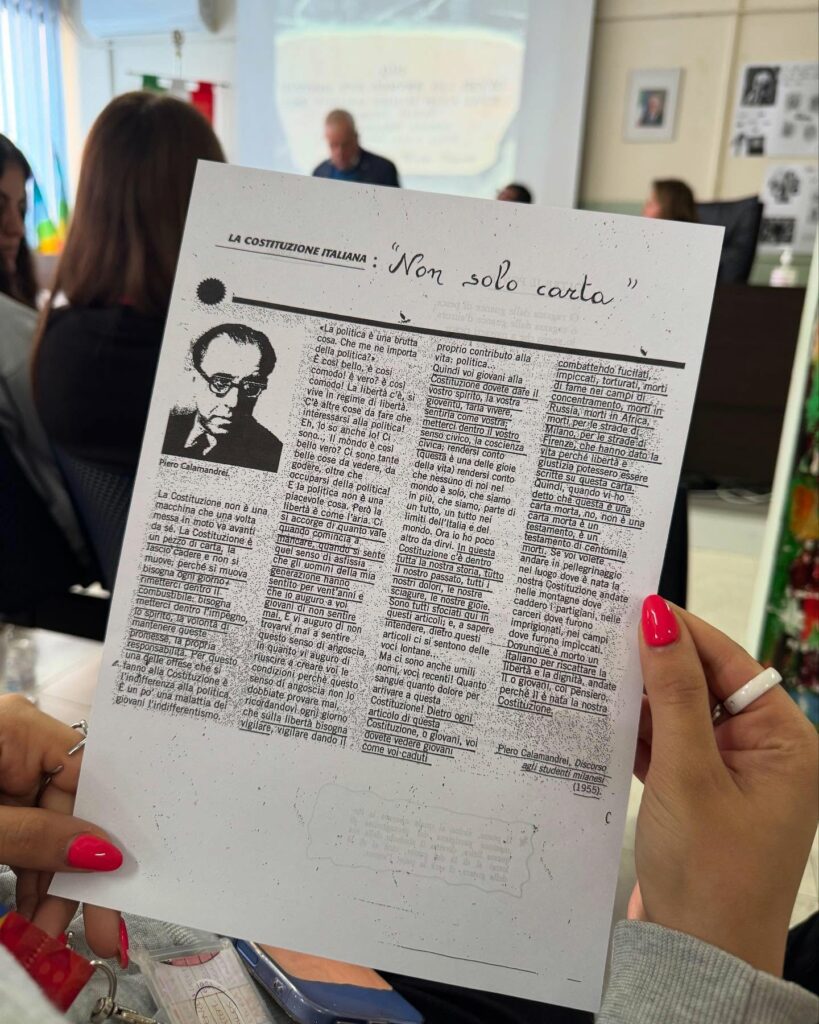 LA COSTITUZIONE ITALIANA : "Non solo carta"
Piero Calamandrei.
La Costituzione non è una
macchina che una volta
messa in moto va avanti
da sé. La Costituzione è
un pezzo di carta, la
lascio cadere e non si
muove; perché si muova
bisogna ogni giorno
rimetterci dentro il
combustibile, bisogna
metterci dentro l'impegno,
lo spirito, la volontà di
mantenere queste
promesse, la propria
responsabilità. Per questo
una delle offese che si
fanno alla Costituzione è
l'indifferenza alla politica.
È un po' una malattia dei
giovani l'indifferentismo.
«La politica è una brutta
cosa. Che me ne importa
della politica?»
È così bello, è così
comodo! è vero? è così
comodo! La libertà c'è, si
vive in regime di libertà.
C'è altre cose da fare che
interessarsi alla politica!
Eh, lo so anche io! Ci
sono... Il mondo è così
bello vero? Ci sono tante
belle cose da vedere, da
godere, oltre che
occuparsi della politica!
E la politica non è una
piacevole cosa. Però la
libertà è come l'aria. Ci
si accorge di quanto vale
quando comincia a
mancare, quando si sente
quel senso di asfissia
che gli uomini della mia
generazione hanno
sentito per vent'anni e
che io auguro a voi
giovani di non sentire
mai. E vi auguro di non
trovarvi mai a sentire
questo senso di angoscia,
in quanto vi auguro di
riuscire a creare voi le
condizioni perché questo
senso di angoscia non lo
dobbiate provare mai,
ricordandovi ogni giorno
che sulla libertà bisogna
vigilare, vigilare dando il
proprio contributo alla
vita: politica...
Quindi voi giovani alla
Costituzione dovete dare il
vostro spirito, la vostra
gioventù, farla vivere,
sentirla come vostra;
metterci dentro il vostro
senso civico, la coscienza
civica; rendersi conto
(questa è una delle gioie
della vita) rendersi conto
che nessuno di noi nel
mondo è solo, che siamo
in più, che siamo, parte di
un tutto, un tutto nei
limiti dell'Italia e del
mondo. Ora io ho poco
altro da dirvi. In questa
Costituzione c'è dentro
tutta la nostra storia, tutto
il nostro passato, tutti i
nostri dolori, le nostre
sciagure, le nostre gioie.
Sono tutti sfociati qui in
questi articoli; e, a sapere
intendere, dietro questi
articoli ci si sentono delle
voci lontane...
Ma ci sono anche umili
nomi, voci recenti! Quanto
sangue quanto dolore per
arrivare a questa
Costituzione! Dietro ogni
articolo di questa
Costituzione, o giovani, voi
dovete vedere giovani
come voi caduti
combattendo fucilati,
impiccati, torturati, morti
di fame nei campi di
concentramento, morti in
Russia, morti in Africa,
morti per le strade di
Milano, per le strade di
Firenze, che hanno dato la
vita perché libertà e
giustizia potessero essere
scritte su questa carta.
Quindi, quando vi ho
detto che questa è una
carta morta, no, non è una
carta morta è un
testamento, è un
testamento di centomila
morti. Se voi volete
andare in pellegrinaggio
nel luogo dove è nata la
nostra Costituzione andate
nelle montagne dove
caddero i partigiani, nelle
carceri dove furono
imprigionati, nei campi
dove furono impiccati.
Dovunque è morto un
Italiano per riscattare la
libertà e la dignità, andate
lì o giovani, col pensiero,
perché lì è nata la nostra
Costituzione.
Piero Calamandrei, Discorso
agli studenti milanesi
(1955).